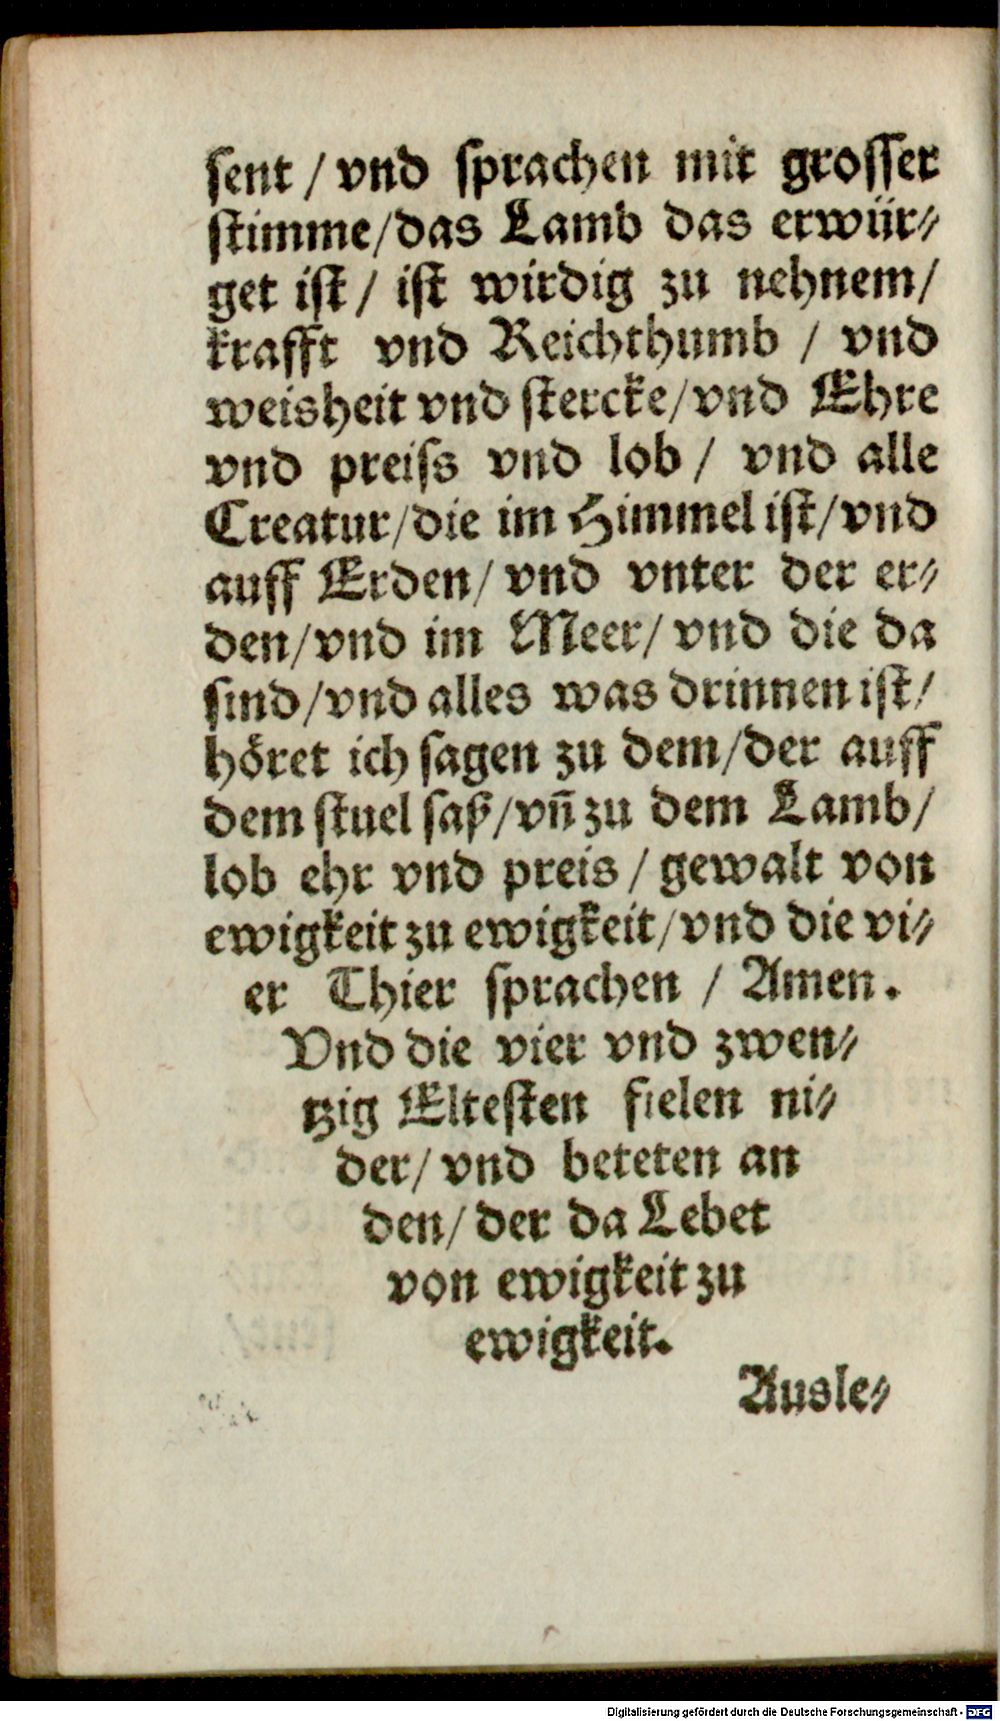 ſent / vnd ſprachen mit groſſer
ſtimme/das Lamb das erwür⸗
get iſt / iſt wirdig zu nehnem/
krafft vnd Reichthumb / vnd
weisheit vnd ſtercke/vnd Ehre
vnd preiſs vnd lob / vnd alle
Creatur/die im Himmel iſt/vnd
auff Erden/ vnd vnter der er⸗
den/vnd im Meer/ vnd die da
ſind/vnd alles was drinnen iſt/
höret ich ſagen zu dem/der auff
dem ſtuel ſaß/vñ zu dem Lamb/
lob ehr vnd preis / gewalt von
ewigkeit zu ewigkeit/vnd die vi⸗
er Thier ſprachen / Amen.
Vnd die vier vnd zwen⸗
tzig Elteſten fielen ni⸗
der/ vnd beteten an
den/ der da Lebet
von ewigkeit zu
ewigkeit.
Ausle⸗
Digitalisierung gefördert durch die Deutsche Forschungsgemeinschaft - DFG